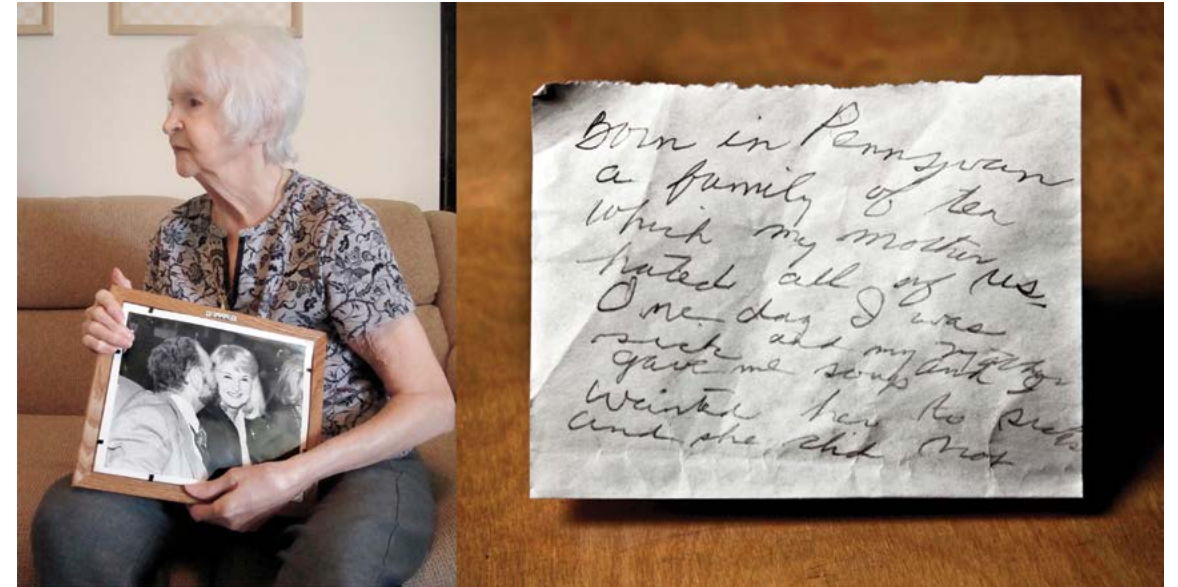 Born in Pennsyvan
a family of ten
which my mother
hated all of us.
One day I was
sick and my mother
gave me soup and I
wanted her to
and she did not